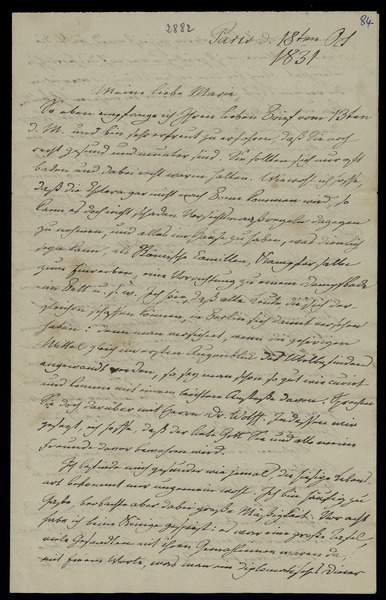 2882
84
Paris d. 18ten Oct
1831
Meine liebe Mama
So eben empfange ich Ihren lieben Brief vom 13ten
d. M. und bin sehr erfreut zu ersehen, daß Sie noch
recht gesund und munter sind. Sie sollten sich nur oft
baden und dabei recht warm halten. Wiewohl ich hoffe,
daß die Cholera gar nicht nach Bonn kommen wird, so
kann es doch nicht schaden Vorsichtsmaaßregeln dagegen
zu nehmen, und alles im Hause zu haben, was dienlich
seyn kann, als Römische Camillen, Kampfer salbe
zum Einreiben, eine Vorrichtung zu einem Dampfbade
im Bett u. s. w. Ich sehe daß alle Leute die sich der-
gleichen schaffen können, in Berlin sich damit versehen
haben: denn man versichert, wenn die gehörigen
Mittel gleich im ersten Augenblick des Uebelbefindens
angewandt werden, so sey man schon so gut wie curirt
und komme mit einem leichten Anstoße davon. Sprechen
Sie doch darüber mit Herrn Dr. Wolff. Indessen wie
gesagt, ich hoffe, daß der liebe Gott Sie und alle meine
Freunde davor bewahren wird.
Ich befinde mich gesünder wie jemal, die hiesige Lebens-
art bekommt mir ungemein wohl. Ich bin häufig zu
Gaste, beobachte aber dabei große Mäßigkeit. Vor acht
habe ich beim Könige gespeist: es war eine große Tafel,
viele Gesandten mit ihren Gemahlinnen waren da,
mit einem Worte, was man ein diplomatisches Diner